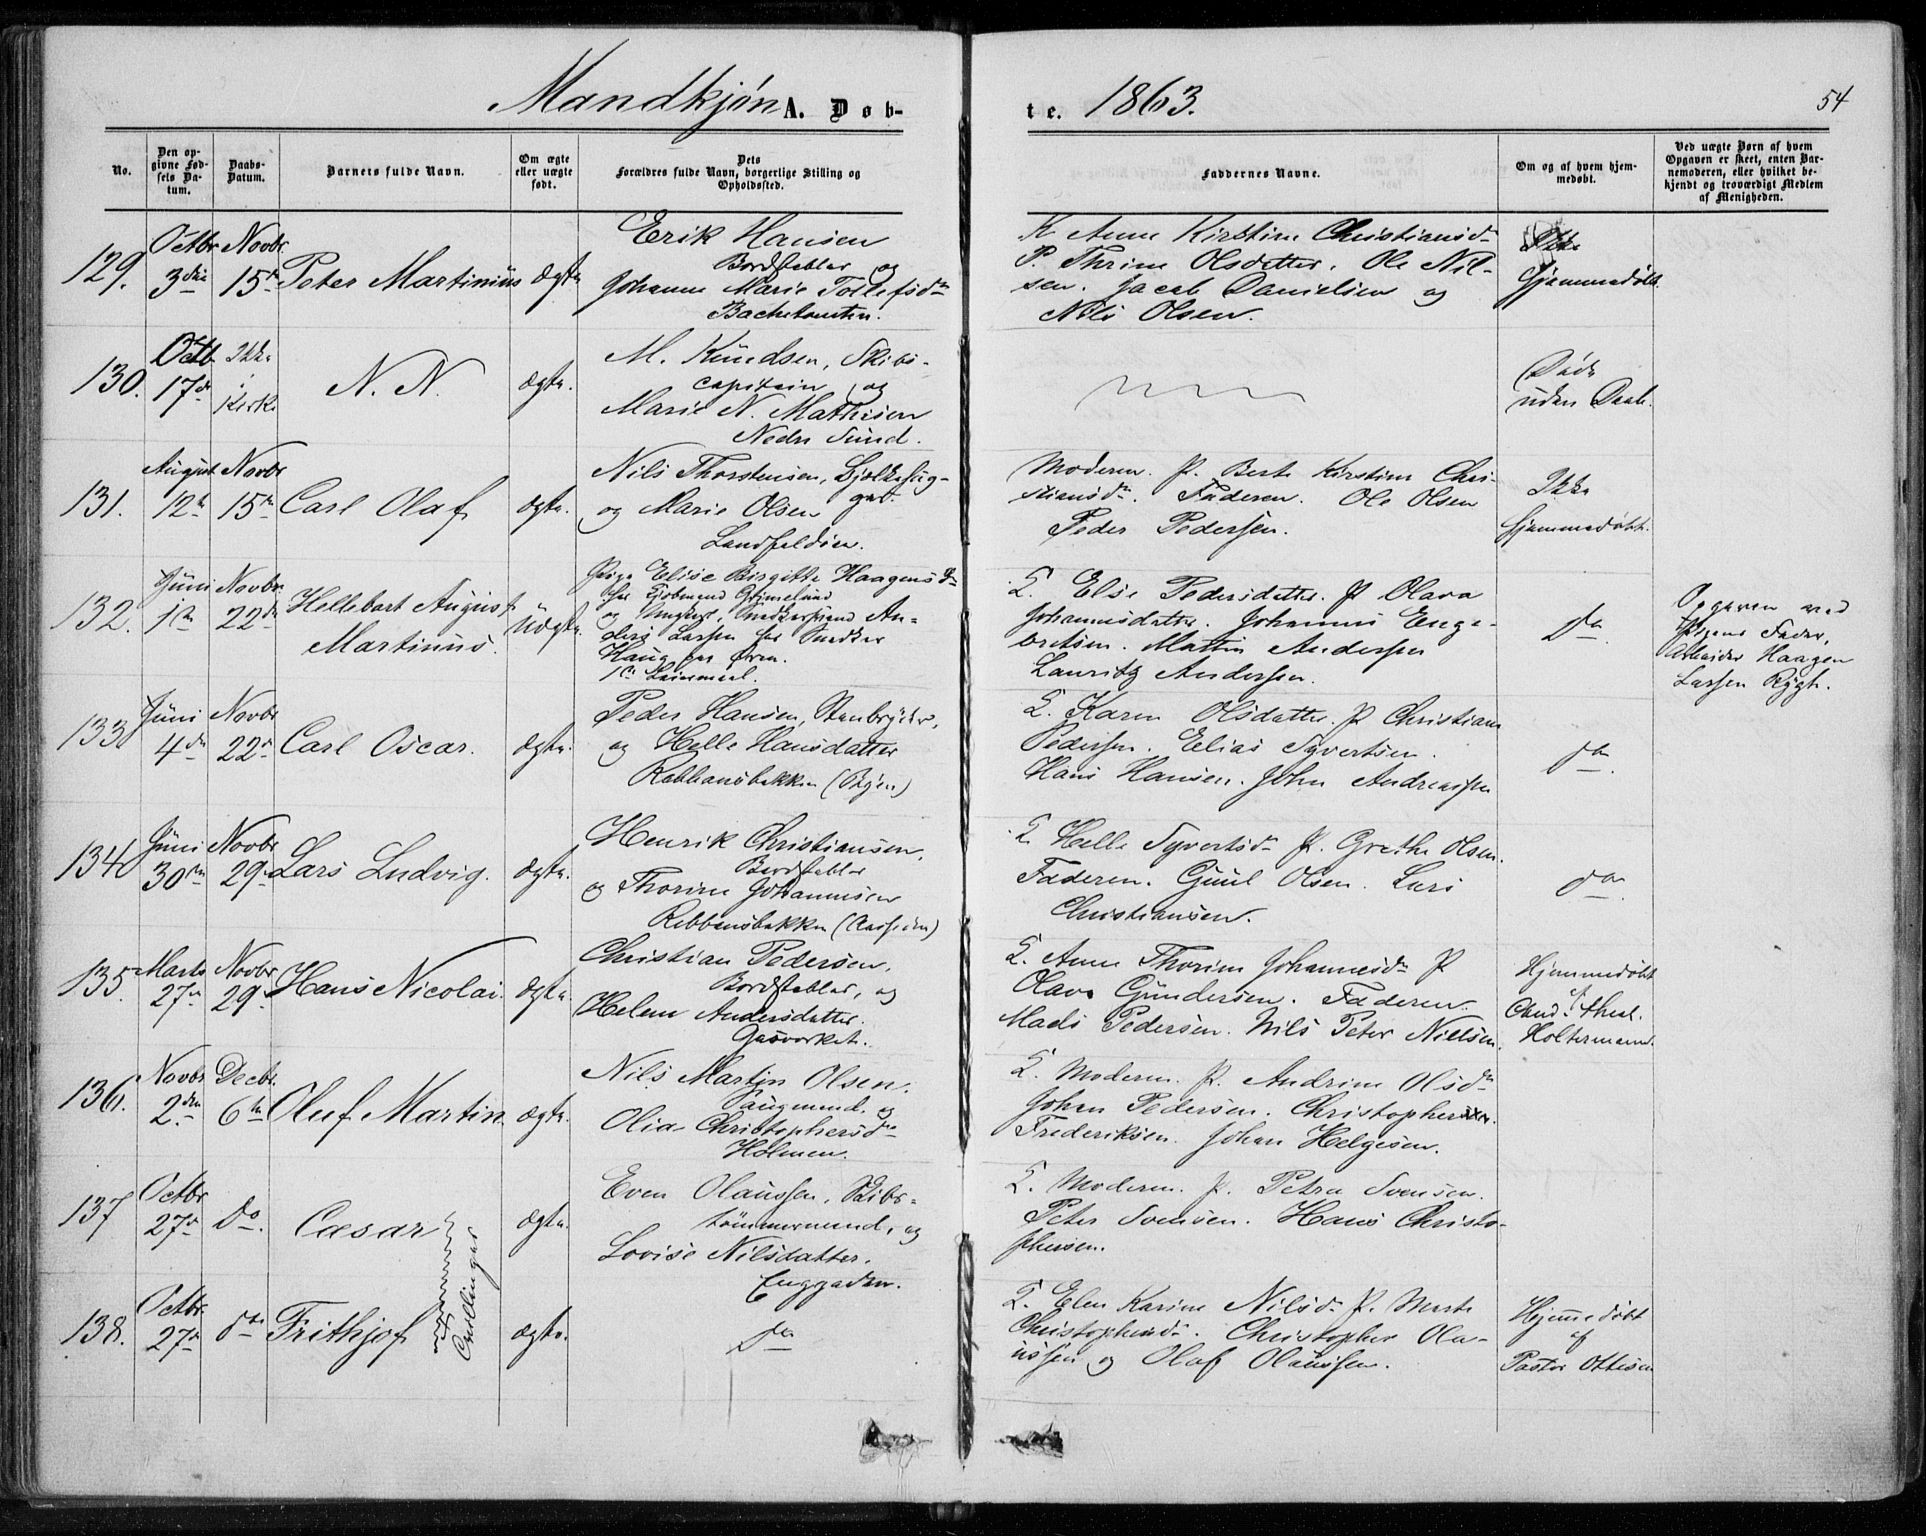 Mandkjøn A. Døb-
te. 1863.
54
No.
Den op-
givne Fød-
sels Da-
tum.
Daabs-
Datum.
Barnets fulde Navn.
Om ægte
eller uægte
født.
Dets
Forældres fulde Navn, borgerlige Stilling og
Opholdssted.
Faddernes Navne.
Om og af hvem hjem-
medøbt.
Ved uægte Børn af hvem
Opgaven er skeet, enten Bar-
nemoderen, eller hvilket be-
kjendt og troværdigt Medlem
af Menigheden.
129.
Octbr
3die
Novbr
15de
Peter Martinius
Ægte
Erik Hansen
Bordstabler og
Johanne Marie Tollefsdr
K Anne Kirstine Christiansdr
P. Thrine Olsdatter. Ole Nil-
sen. Jacob Danielsen og
Nils Olsen.
Ikke
hjemmedøbt.
130.
Octb
17de
Ikke
i
Kirke
N. N.
ægte.
M. Knudsen, Skibs-
capitain og
Marie N. Mathisen
Nedre Sund.
Døde
uden Daab.
131.
August
12te
Novbr
15de
Carl Olaf
ægte.
Nils Thorstensen, Bjelkehug-
ger.
og Marie Olsen
Landfaldøen.
Moderen. P. Berte Kirstine Chri-
stiansdr. Faderen. Ole Olsen
Peder Pedersen.
Ikke
hjemmedøbt.
132.
Juni
1te
Novbr
22de
Hellebart August
Martinus.
Uægte.
Pige Elise Birgitte Haagensdr
og Ungkarl, Snedkersvend An-
ders Larsen hos Snedker
Haug paa Øren.
1ste Leiermaal.
L. Else Pedersdatter. P. Olava
Johannesdatter. Johannes Enge-
bretsen. Mattis Andersen
Lauritz Andersen.
do.
Opgaven ved
Pigens Fader,
Arbeider Haagen
Larsen Rygh.
133
Juni
4de
Novbr
22de
Carl Oscar.
ægte.
Peder Hansen, Stenbryder,
og Helle Hansdatter
Rabbansbakken (Skjøn)
L. Karen Olsdatter. P. Christiane
Pedersen. Elias Syvertsen.
Hans Hansen. John Andreassen
do.
134
Juni
30te
Novbr
29de
Lars Ludvig.
ægte.
Henrik Christiansen,
Bordstabler
og Thorine Johannesen
L. Helle Syvertsdr P. Grethe Olsen.
Faderen. Guul Olsen. Lars
Christiansen.
do.
135.
Marts
27de
Novbr
29de
Hans Nicolai.
ægte.
Christian Pedersen,
Bordstabler, og
Helene Andersdatter.
Gasverket.
L. Anne Thorine Johannesdr P.
Olava Gundersen. Faderen.
Mads Pedersen. Nils Peter Nielsen.
Hjemmedøbt
af
Cand. theol.
Holtermann.
136.
Novbr
2den
Decbr.
6te
Oluf Martin
ægte.
Nils Martin Olsen.
Laugmand, og
Olia Christophersdr
Holmen.
L. Moderen. P. Andrine Olsdr
Johan Pedersen. Christopher
Frederiksen. Johan Helgesen.
137
Octbr
27de
do.
Cæsar
ægte.
Even Olaussen, Skibs-
tømmermand, og
Lovise Nilsdatter,
Enggaden.
L. Moderen. P. Petra Svensen.
Peter Svensen. Hans Christo-
phersen.
Tvillinger
138.
Octbr
27de
do
Frithjof
ægte.
do
L. Elen Karine Nilsdr P. Marte
Christophersdr. Christopher Ola-
ussen og Olaf Olaussen.
Hjemmedøbt
af
Pastor Ottesen